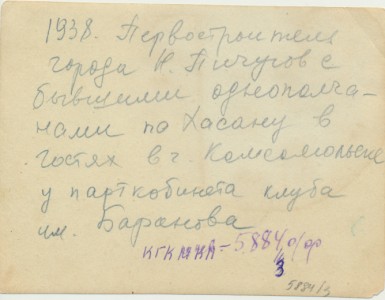 1938. Первостроитель
города Н. Пичугов с
бывшими однополча-
нами по Хасану в
гостях в г. Комсомольске
у парткабинета клуба
им. Баранова
КГКМКА-5884 о/ф
3
5884/3